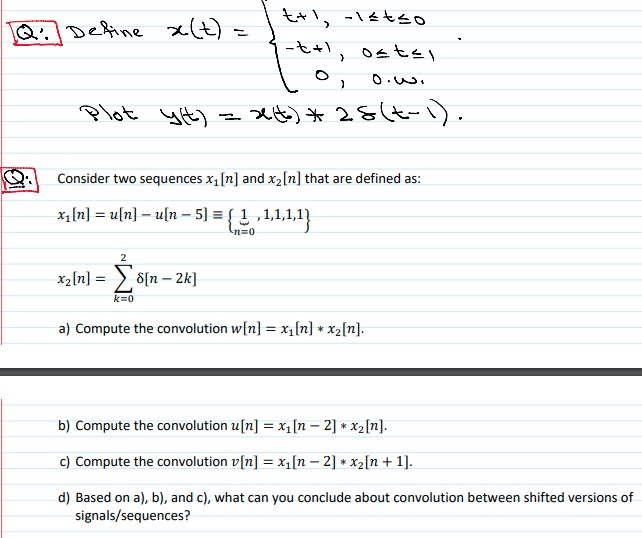 t+1, -1≤t≤0
Q: Define x(t) = { -t+1, 0≤t≤1 .
0, o.w.
Plot y(t) = x(t) * 2δ(t-1).
Q: Consider two sequences x₁[n] and x₂[n] that are defined as:
x₁[n] = u[n] − u[n − 5] ≡ {1, 1,1,1,1}
n=0
2
x₂[n] = ∑ δ[n − 2k]
k=0
a) Compute the convolution w[n] = x₁[n] * x₂[n].
b) Compute the convolution u[n] = x₁[n − 2] * x₂[n].
c) Compute the convolution v[n] = x₁[n − 2] * x₂[n + 1].
d) Based on a), b), and c), what can you conclude about convolution between shifted versions of
signals/sequences?